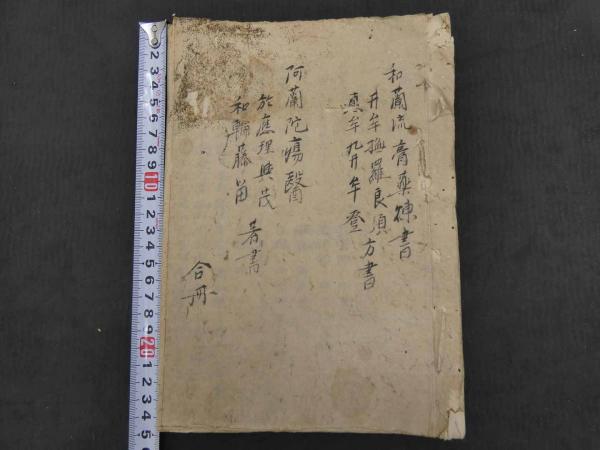 和蘭流膏薬練書
井牟撫羅良須方書
真牟九井牟登
阿蘭陀瘍醫
於應理興茂
和輪藤苗
著書
合冊
2 3 4 5 6 7 8 9 10 1 2 3 4 5 6 7 8 9 20 1 2 3 4 5 6